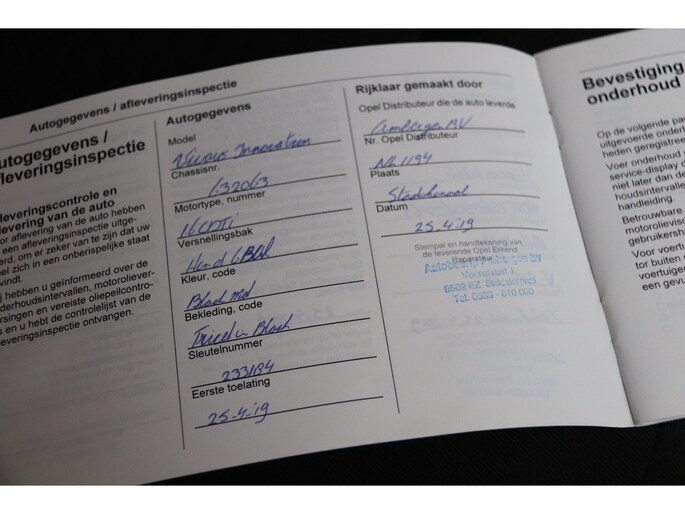 Autogegevens / afleveringsinspectie
utogegevens /
fleveringsinspectie
leveringscontrole en
levering van de auto
or aflevering van de auto hebben
een afleveringsinspectie uitge-
erd, om er zeker van te zijn dat uw
el zich in een onberispelijke staat
vindt.
j hebben u geïnformeerd over de
derhoudsintervallen, motoroliever-
rsingen en vereiste oliepeilcontro-
s en u hebt de controlelijst van de
leveringsinspectie ontvangen.
Autogegevens
Model
Vivaro Innovation
Chassisnr.
632063
Motortype, nummer
16 CDTI
Versnellingsbak
Hand 6 BAK
Kleur, code
Black md
Bekleding, code
Tricot in Black
Sleutelnummer
233184
Eerste toelating
25-4-19
Rijklaar gemaakt door
Opel Distributeur die de auto leverde
BV
Nr. Opel Distributeur
NL 1194
Plaats
Stadskanaal
Datum
25-4-19
Stempel en handtekening van
de leverende Opel Erkend
Reparateur
BV
9502 EZ Stadskanaal
Tel. 0599 - 610 000
Bevestiging
onderhoud
Op de volgende pa
uitgevoerde onderh
heden geregistreer
Voer onderhoud
service-display
niet later dan de
houdsintervallen
handleiding.
Betrouwbare
motorolievis
gebruikersh
Voor voertu
tor buiten
voertuigen
een gevu